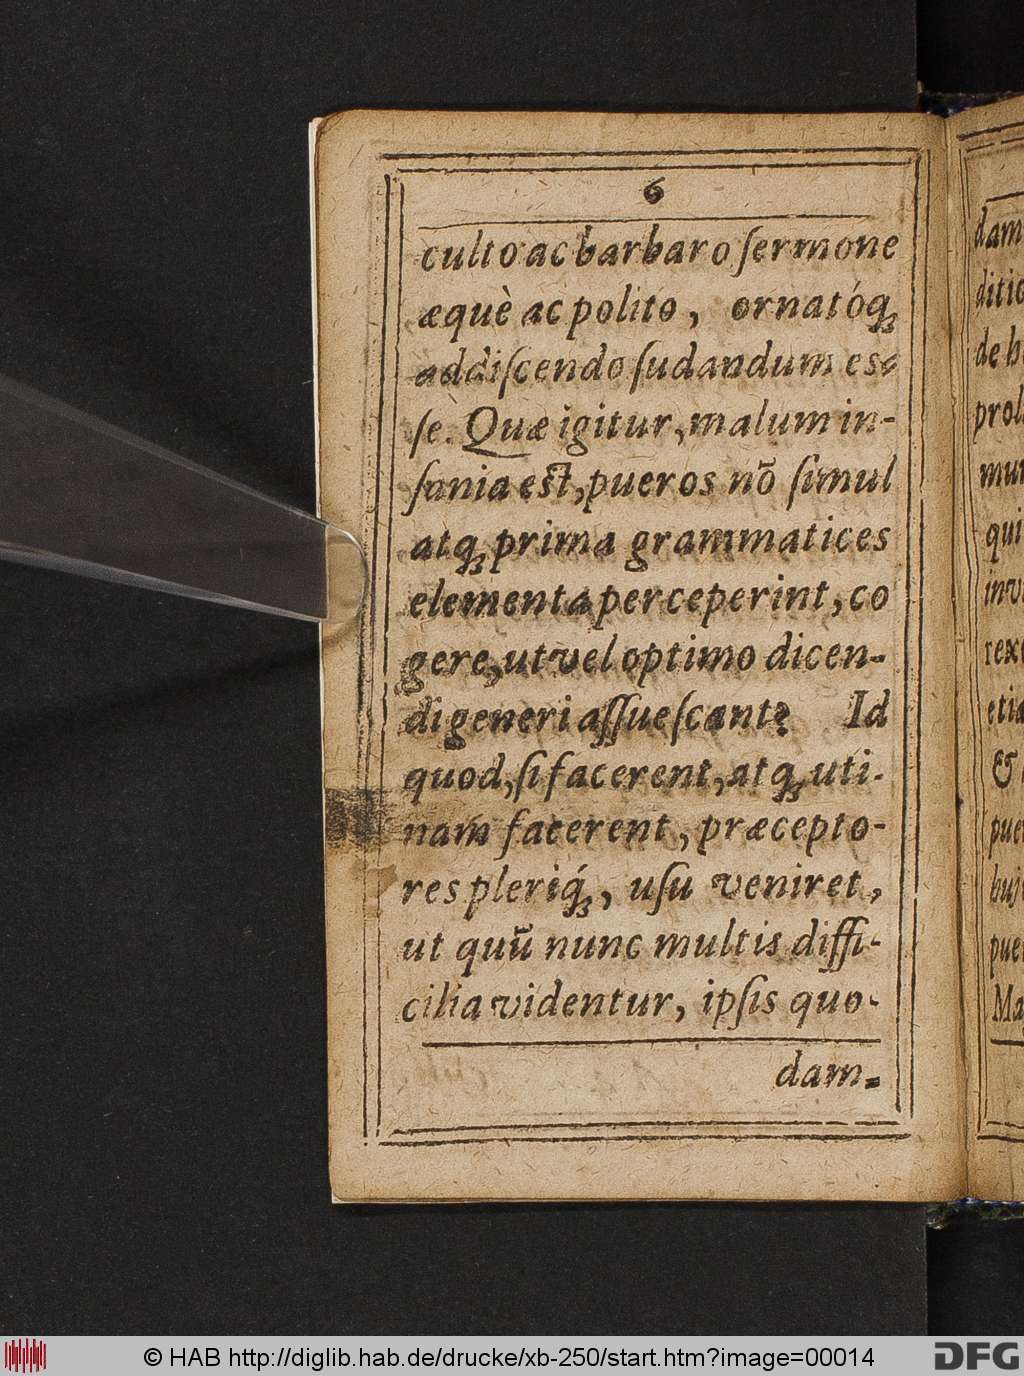 6
culto ac barbaro ſermone
æquè ac polito, ornatóqꝫ
addiſcendo ſudandum eſ-
ſe. Quæ igitur, malum in-
ſania est, pueros nõ ſimul
atqꝫ prima grammatices
elementa perceperint, co
gere, ut vel optimo dicen-
di generi aſſueſcant? Id
quod, ſi facerent, atqꝫ uti-
nam facerent, præcepto-
res pleriq́ꝫ, uſu veniret,
ut quũ nunc multis diffi-
cilia videntur, ipſis quo-
dam-
dam
ditio
de h
prol
mun
qui
inv
rex
etia
&
pue
buj
pue
Ma
© HAB http://diglib.hab.de/drucke/xb-250/start.htm?image=00014
DFG